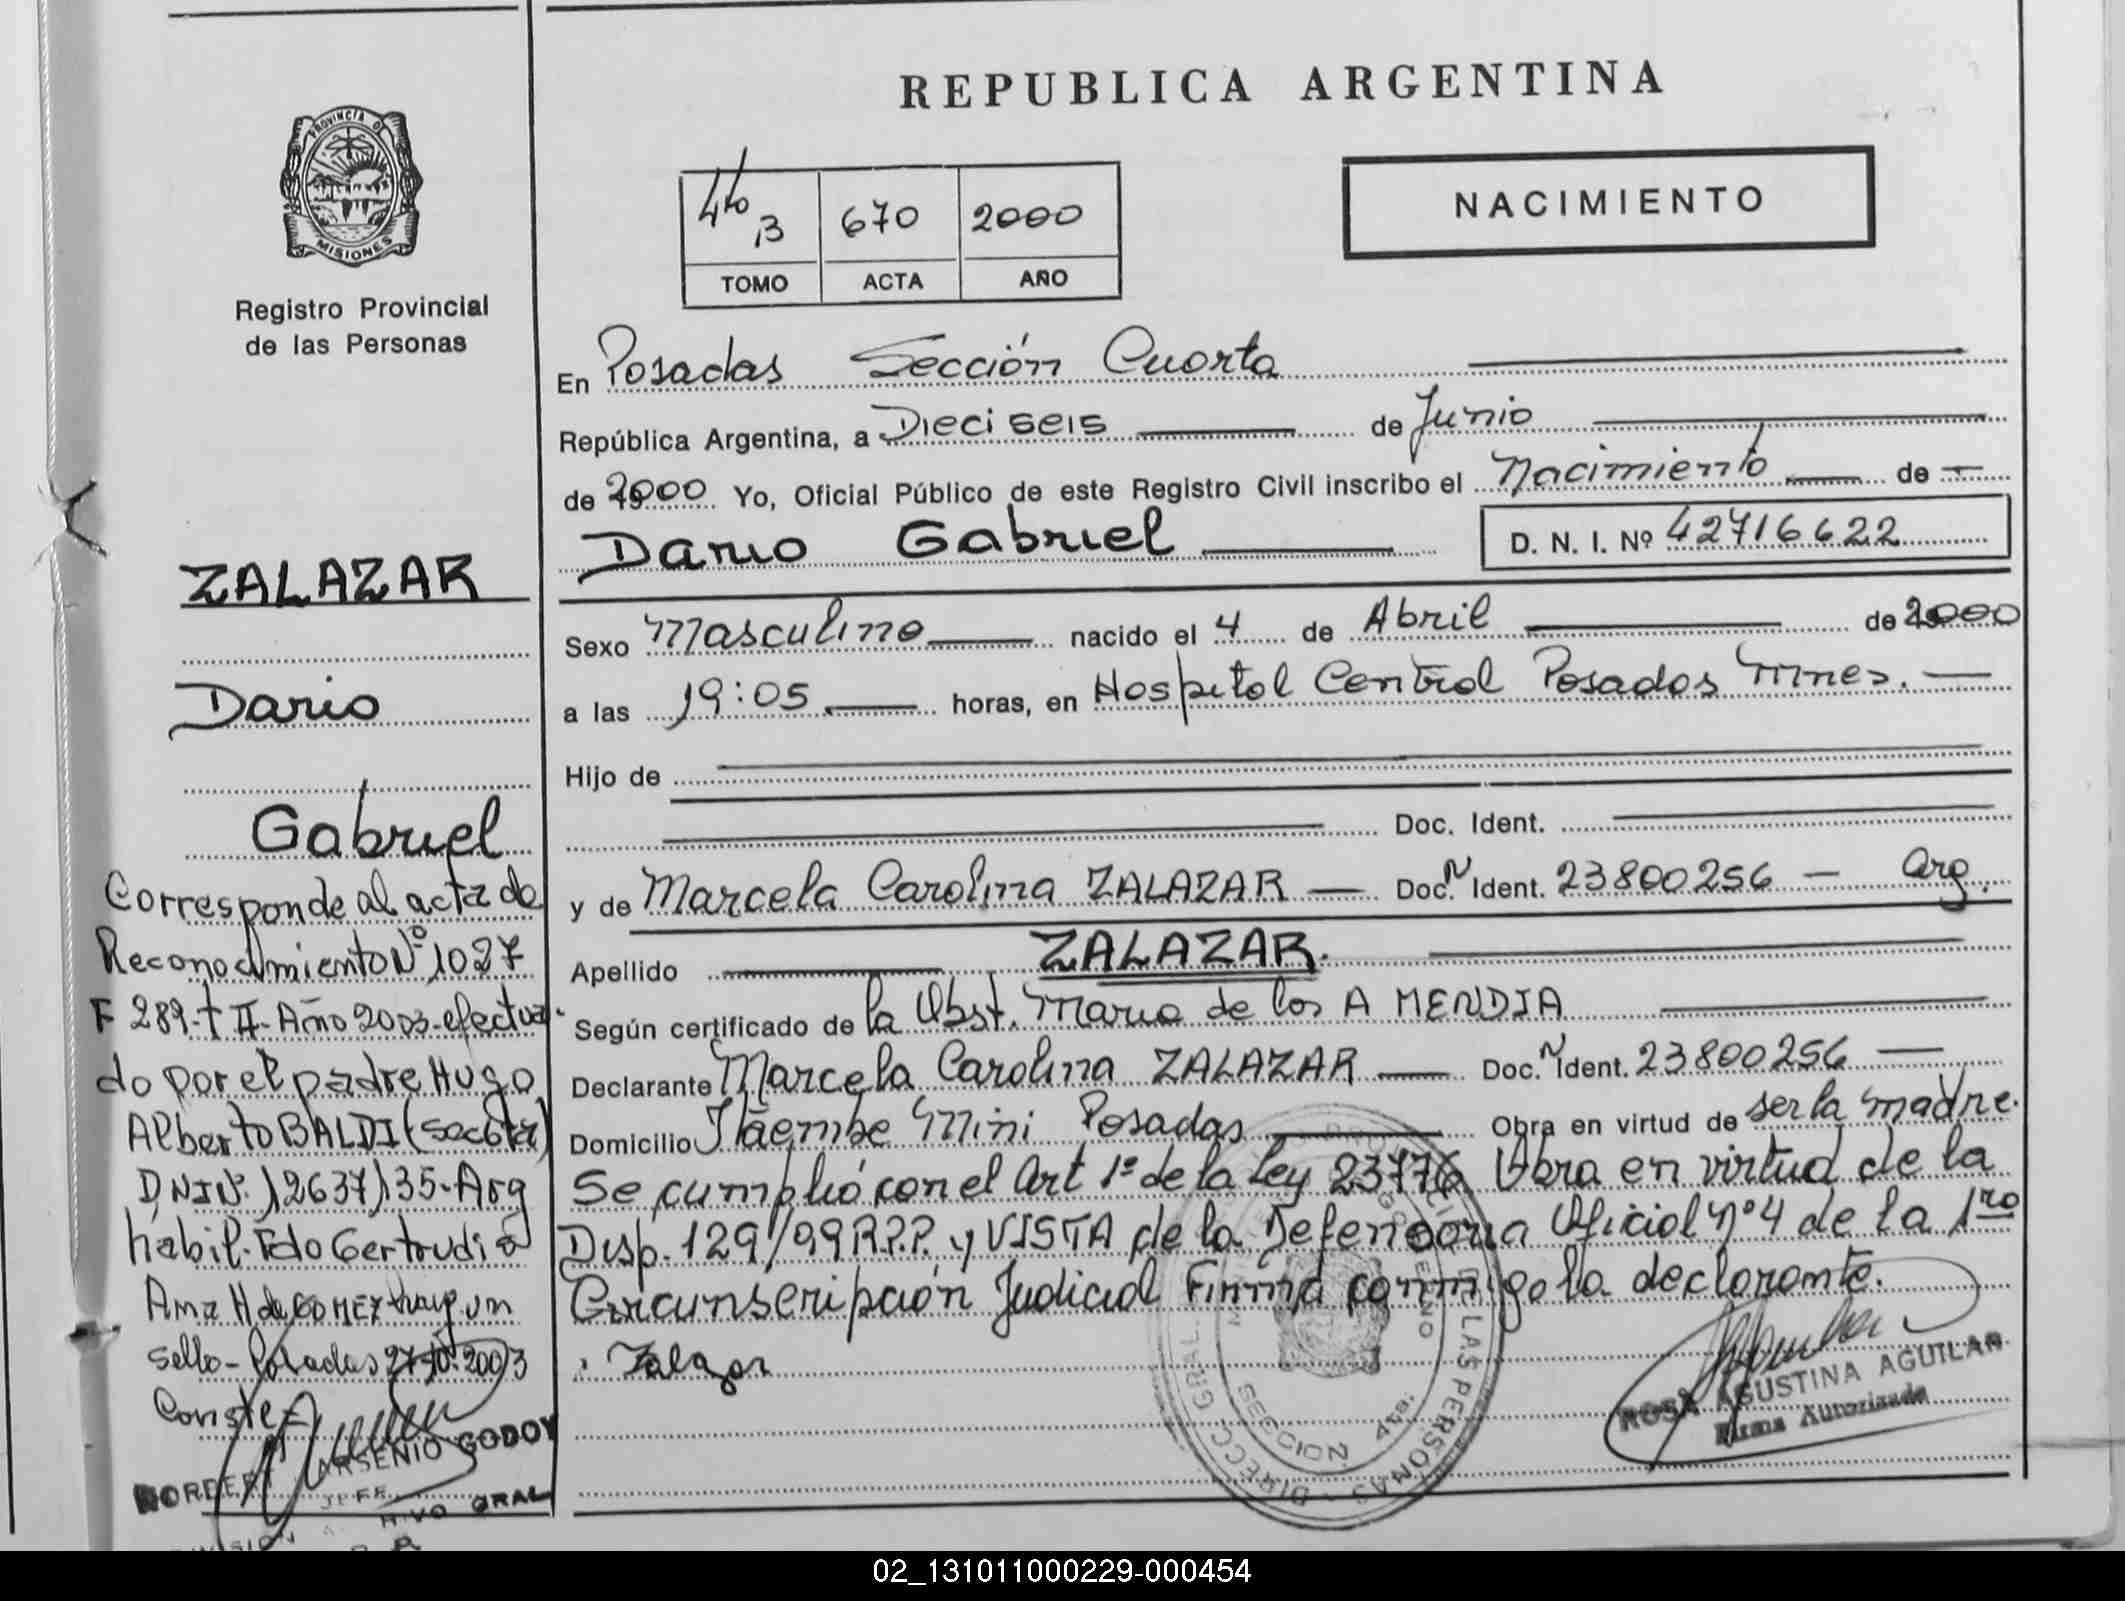 REPUBLICA ARGENTINA
PROVINCIA D
MISIONES
Registro Provincial
de las Personas
4to B 670 2000
TOMO ACTA AÑO
NACIMIENTO
En Posadas Sección Cuarta
República Argentina, a Dieciseis de Junio
de 2000 Yo, Oficial Público de este Registro Civil inscribo el Nacimiento de
Dario Gabriel D. N. I. Nº 42716622
Sexo Masculino nacido el 4 de Abril de 2000
a las 19:05 horas, en Hospital Central Posadas Mnes.
Hijo de
Doc. Ident.
y de Marcela Carolina ZALAZAR Doc. N Ident. 23800256 Arg.
Apellido ZALAZAR.
Según certificado de la Obst. Maria de los A MENDIA
Declarante Marcela Carolina ZALAZAR Doc. N Ident. 23800256
Domicilio Itaembe Mini Posadas Obra en virtud de ser la madre.
Se cumplió con el Art 1º de la Ley 23776 Obra en virtud de la
Disp. 129/99 R.P.P. y VISTA de la Defensoria Oficial Nº 4 de la 1ro
Circunscripción Judicial Firma conmigo la declarante.
Zalazar
ROSA AGUSTINA AGUILAR
Firma Autorizada
SECCION 4ta.
DIRECC. GRAL. LAS PERSONAS
ZALAZAR
Dario
Gabriel
Corresponde al acta de
Reconocimiento Nº 1027
F 289-t II-Año 2003-efectua
do por el padre Hugo
Alberto BALDI (Socota)
DNI Nº 12637135-Arg
habil. Fdo Gertrudis
Ana H de GOMEZ hay un
sello-Posadas 27-10-2003
Conste-
NORBERT ARSENIO GODOY
JEFE
DIVISION ARCHIVO GRAL
02_131011000229-000454